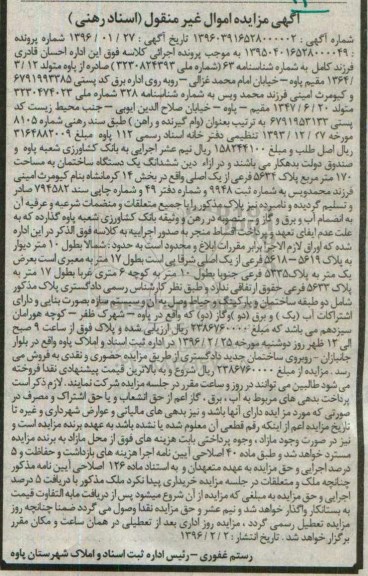 آگهی مزایده اموال غیر منقول (اسناد رهنی)
شماره آگهی : ۱۳۹۶۰۳۹۱۶۵۲۸۰۰۰۰۰۲ تاریخ آگهی : ۲۷ / ۰۱ / ۱۳۹۶ شماره پرونده
: ۱۳۹۵۰۴۰۱۶۵۲۸۰۰۰۰۴۹ به موجب پرونده اجرائی کلاسه فوق این اداره احسان قادری
فرزند کامل به شماره شناسنامه ۶۳ (شماره ملی ۳۲۳۰۸۲۴۳۹۳ ) صادره از پاوه متولد ۱۲ / ۳
/ ۱۳۶۴ مقیم پاوه – خیابان امام محمد غزالی – روبه روی اداره برق کد پستی ۶۷۹۱۹۹۳۳۸۵
و کیومرث امینی فرزند محمد ویس به شماره شناسنامه ۳۲۸ شماره ملی ۳۲۳۰۴۷۴۰۲۳
متولد ۲۰ / ۶ / ۱۳۴۷ مقیم – پاوه – خیابان صلاح الدین ایوبی – جنب محیط زیست کد
پستی ۶۷۹۱۹۵۳۱۳۳ به ترتیب بعنوان (وام گیرنده و راهن) طبق سند رهنی شماره ۸۱۰۵
مورخه ۲۷ / ۱۲ / ۱۳۹۳ تنظیمی دفتر خانه اسناد رسمی ۱۱۲ پاوه مبلغ ۳۱۶۴۸۸۲۰۰۹
ریال اصل طلب و مبلغ ۱۵۸۲۴۴۱۰۰ ریال نیم عشر اجرایی به بانک کشاورزی شعبه پاوه و
صندوق دولت بدهکار می باشند و در ازاء دین ششدانگ یک دستگاه ساختمان به مساحت
۱۷۰ متر مربع پلاک ۵۶۳۴ فرعی از یک اصلی واقع در بخش ۱۴ کرمانشاه بنام کیومرث امینی
فرزند محمدویس به شماره ثبت ۹۹۴۸ و شماره دفتر ۴۹ و شماره چاپی سند ۷۹۴۵۸۲ صادر
و تسلیم گردیده و نامبرده نیز پلاک مذکور را با جمیع متعلقات و منضمات شرعیه و عرفیه آن
به انضمام آب و برق و گاز و منصوبه در رهن و وثیقه بانک کشاورزی شعبه پاوه گذارده که به
علت عدم ایفای تعهد و پرداخت اقساط منجر به صدور اجراییه به کلاسه فوق الذکر در این اداره
شده که اوراق لازم الاجرا برابر مقررات ابلاغ و محدود است به حدود : شمالا بطول ۱۰ متر دیوار
به پلاک ۵۶۱۹ – ۵۶۱۸ فرعی از یک اصلی شرقا پی است بطول ۱۷ متر به معبری است بعرض
یک متر به پلاک ۵۳۳۵ فرعی جنوبا بطول ۱۰ متر به کوچه ۶ متری غربا بطول ۱۷ متر به
پلاک ۵۶۳۳ فرعی حقوق ارتفاقی ندارد و طبق نظر کارشناس رسمی دادگستری پلاک مذکور
شامل دو طبقه ساختمان و پارکینگ و حیاط و سیستم سازه بصورت بنایی و دارای
اشتراکات آب (یک) و برق (دو) و گاز (دو) که واقع در پاوه – شهرک ظفر – کوچه هورامان
سیزدهم می باشد که مبلغ ۲۳۸۶۷۶۰۰۰۰ ریال ارزیابی شده و پلاک فوق از ساعت ۹ صبح
الی ۱۲ ظهر روز دوشنبه مورخه ۲۵ / ۲ / ۱۳۹۶ در اداره ثبت اسناد و املاک پاوه واقع در بلوار
جانبازان – روبروی ساختمان جدید دادگستری از طریق مزایده حضوری و نقدی به فروش می
رسد . مزایده از مبلغ ۲۳۸۶۷۶۰۰۰۰ ریال شروع و به بالاترین قیمت پیشنهادی نقدا فروخته
می شود طالبین می توانند در روز و ساعت مقرر در جلسه مزایده شرکت نمایند . لازم ذکر است
پرداخت بدهی های مربوط به آب ، برق ، گاز اعم از حق انشعاب و یا حق اشتراک و مصرف در
صورتی که مورد مزایده دارای آنها باشد و نیز بدهی های مالیاتی و عوارض شهرداری و غیره تا
تاریخ مزایده اعم از اینکه رقم قطعی آن معلوم شده یا نشده باشد به عهده برنده مزایده است و
نیز در صورت وجود مازاد ، وجوه پرداختی بابت هزینه های فوق از محل مازاد به برنده مزایده
مسترد خواهد شد و طبق ماده ۴۰ اصلاحی آیین نامه اجرا هزینه های بازداشت و حفاظت و ۵
درصد اجرایی و حق مزایده به عهده متعهدان و به استناد ماده ۱۲۶ اصلاحی آیین نامه مذکور
چنانچه ملک و متعلقات در جلسه مزایده خریداری پیدا نکرد ملک مذکور با دریافت ۵ درصد
اجرایی و حق مزایده به مبلغی که مزایده از آن شروع میشود پس از دریافت مابه التفاوت قیمت
به بستانکار واگذار خواهد شد و نیم عشر و حق مزایده نقدا وصول می گردد ضمنا چنانچه روز
مزایده تعطیل رسمی گردد ، مزایده روز اداری بعد از تعطیلی در همان ساعت و مکان مقرر
برگزار خواهد شد . تاریخ انتشار : ۲ / ۲ / ۱۳۹۶
رستم غفوری – رئیس اداره ثبت اسناد و املاک شهرستان پاوه